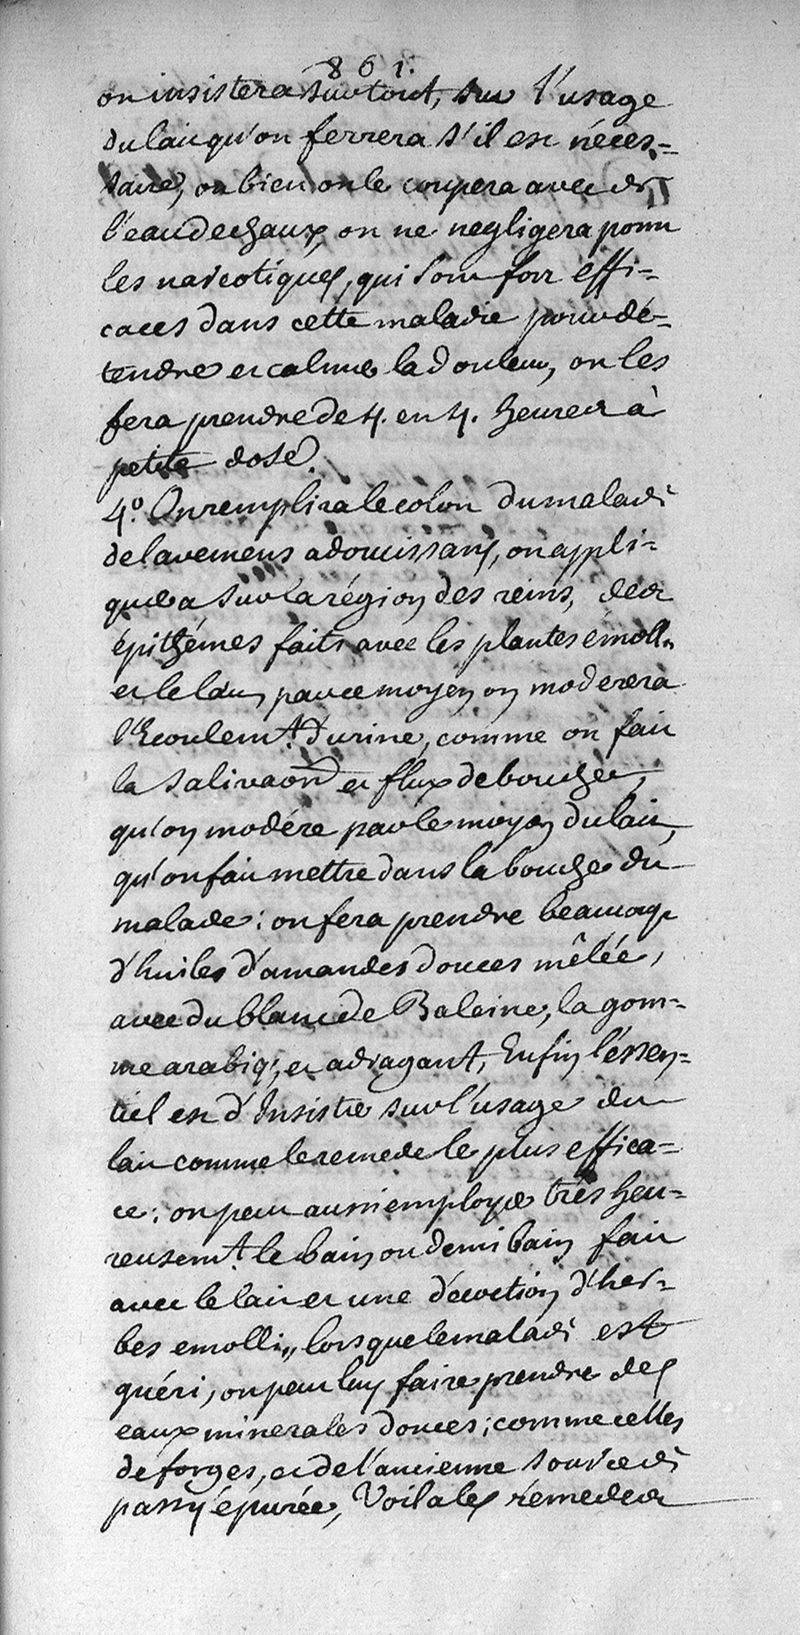 861.
on insistera surtout, sur l'usage
du lait qu'on ferrera s'il est néces-
saire, ou bien on le coupera avec de
l'eau de chaux, on ne negligera point
les narcotiques, qui sont fort effi-
caces dans cette maladie pour dé-
tendre et calmer la douleur, on les
fera prendre de 4. en 4. heures à
petite dose.
4.º On remplira le colon du malade
de lavemens adoucissans, on appli-
quera sur la région des reins, des
épithémes faits avec les plantes émoll..
et le lait, par ce moyen on moderera
l'Ecoulem.t d'urine, comme on fait
la salivaon et flux de bouche,
qu'on modére par le moyen du lait,
qu'on fait mettre dans la bouche du
malade: on fera prendre beaucoup
d'huiles d'amandes douces mêlée,
avec du blanc de Baleine, la gom-
me arabiq; et adragant, Enfin l'éssen-
tiel est d'Insister sur l'usage du
lait comme le remede le plus effica-
ce: on peut aussi employer trés heu-
reusem.t le bain ou demi bain fait
avec le lait et une décoction d'her-
bes emolli,, lorsque le malade est
guéri, on peut luy faire prendre des
eaux minerales douces; comme celles
de forges, et de l'ancienne source de
passy épurée, Voila les remedes